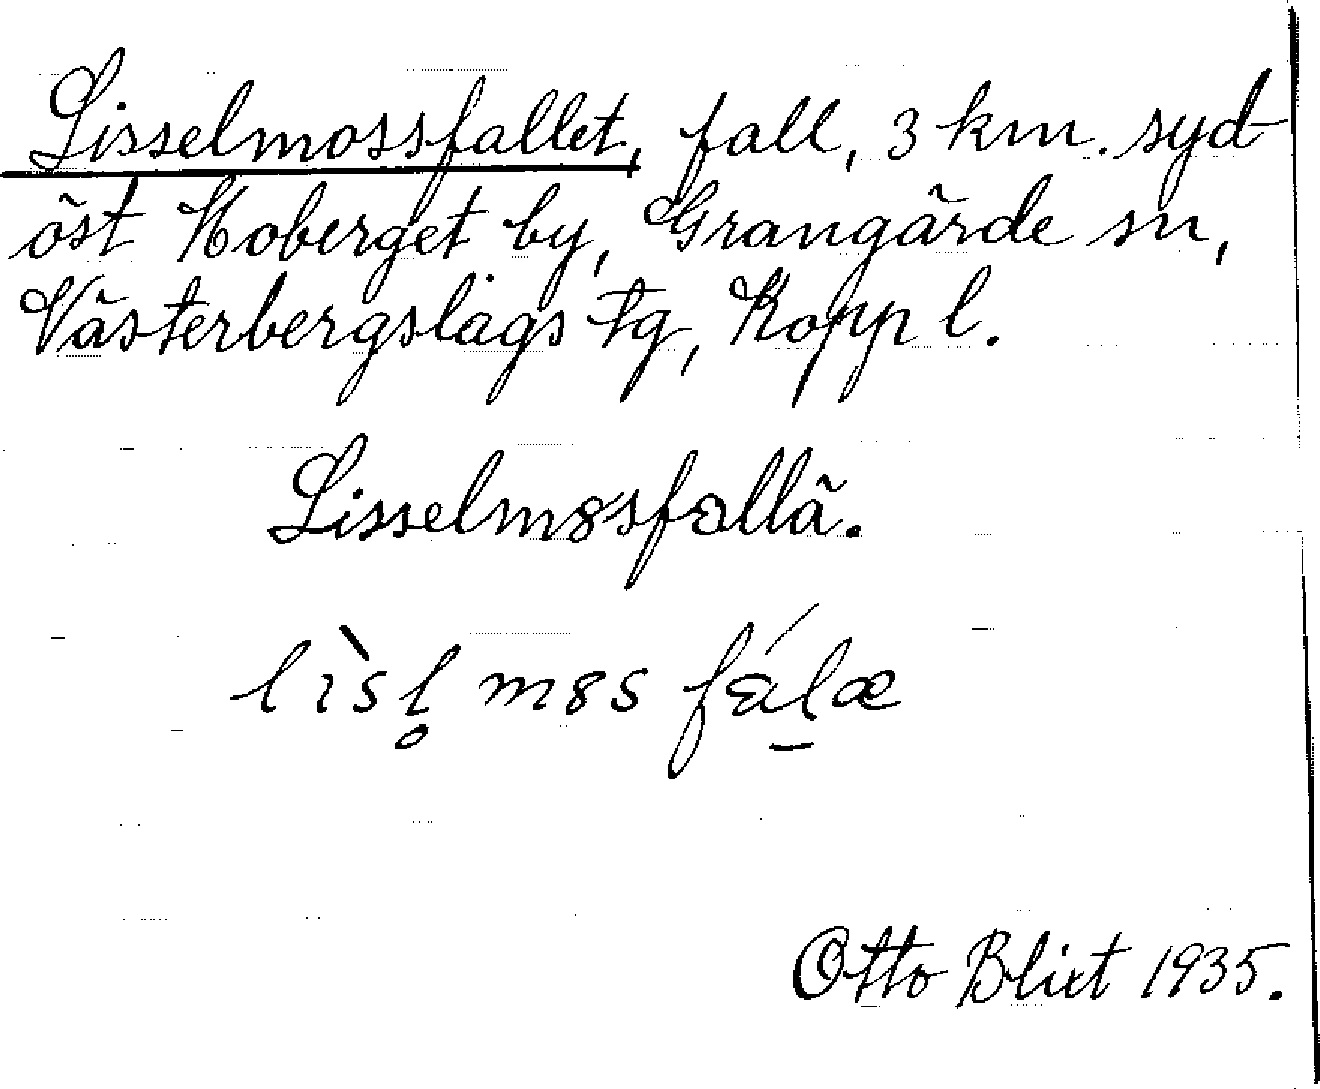 Lisselmossfallet, fall, 3 km. syd
öst Moberget by, Grangärde sn,
Västerbergslags tg, Kopp l.
Lisselmosfallä.
lìsl̥ mȣs fáḻæ
Otto Blixt 1935.